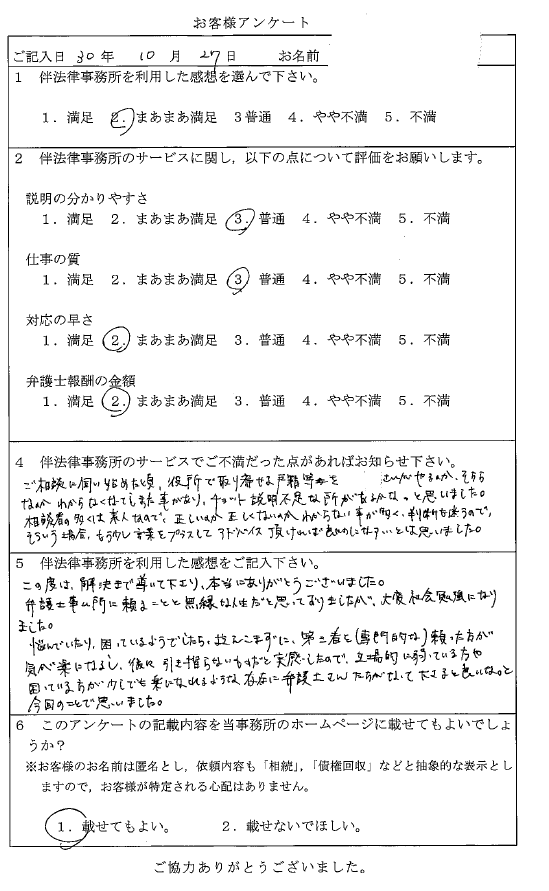 お客様アンケート
ご記入日 30年 10月 27日 お名前
1 伴法律事務所を利用した感想を選んで下さい。
1．満足 2．まあまあ満足 3普通 4．やや不満 5．不満
2 伴法律事務所のサービスに関し，以下の点について評価をお願いします。
説明の分かりやすさ
1．満足 2．まあまあ満足 3．普通 4．やや不満 5．不満
仕事の質
1．満足 2．まあまあ満足 3 普通 4．やや不満 5．不満
対応の早さ
1．満足 2．まあまあ満足 3．普通 4．やや不満 5．不満
弁護士報酬の金額
1．満足 2．まあまあ満足 3．普通 4．やや不満 5．不満
4 伴法律事務所のサービスでご不満だった点があればお知らせ下さい。
ご相談に伺い始めた頃、役所で取り寄せる戸籍等を さんがやるのか、そちら
なのか わからなくなってしまった事があり、チョット説明不足な所があるかなっと思いました。
相談者の多くは素人なので、正しいのか正しくないのかわからない事が多く、判断も迷うので、
そういう場合、もう少し言葉をプラスしてアドバイス頂ければ良いのになぁっとは思いました。
5 伴法律事務所を利用した感想をご記入下さい。
この度は、解決まで導いて下さり、本当にありがとうございました。
弁護士事ム所に頼ることと無縁な人生だと思っておりましたが、大変社会勉強になり
ました。
悩んでいたり、困っているようでしたら、抱えこまずに、第三者と(専門的な)頼った方が
気が楽になるし、後に引き摺らないものだと実感したので、立場的に弱っている方や
困っている方が少しでも楽になれるような存在に弁護士さんたちがなって下さると良いなっと
今回のことで思いました。
6 このアンケートの記載内容を当事務所のホームページに載せてもよいでしょ
うか？
※お客様のお名前は匿名とし，依頼内容も「相続」，「債権回収」などと抽象的な表示とし
ますので，お客様が特定される心配はありません。
1．載せてもよい。 2．載せないでほしい。
ご協力ありがとうございました。